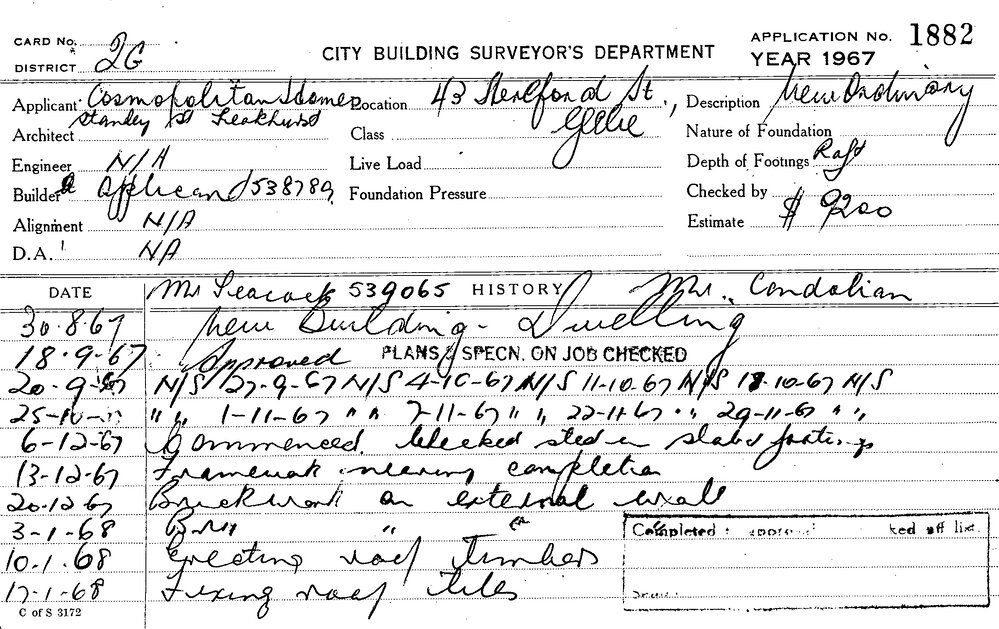 CARD No. CITY BUILDING SURVEYOR'S DEPARTMENT APPLICATION No. 1882
DISTRICT 2G YEAR 1967
Applicant Cosmopolitan Homes Location 43 Hereford St., Description New Ordinary
Stanley St Peakhurst Glebe
Architect Class Nature of Foundation
Engineer N/A Live Load Depth of Footings Raft
Builder Applicant 538789 Foundation Pressure Checked by
Alignment N/A Estimate $ 9200
D.A. NA
DATE Mr Peacock 539065 HISTORY Mr. Condolian
30.8.67 New Building - Dwelling
18.9.67 Approved PLANS & SPECN. ON JOB CHECKED
20-9-67 N/S 27-9-67 N/S 4-10-67 N/S 11-10-67 N/S 18-10-67 N/S
25-10- " " 1-11-67 " " 7-11-67 " " 22-11-67 " " 29-11-67 " "
6-12-67 Commenced. Checked steel in slab & footings
13-12-67 Framework nearing completion
20-12-67 Brickwork on external wall
3-1-68 " "
10.1.68 Erecting roof timbers
17-1-68 Fixing roof tiles
Completed : ked off list.
C of S 3172